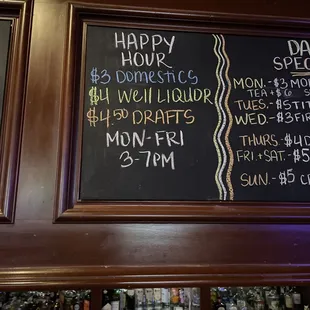 HAPPY
HOUR
$3 DOMESTICS
$4 WELL LIQUOR
$4.50 DRAFTS
MON-FRI
3-7PM
DA
SPEC
MON.-$3 MO
TEA $6
TUES.-$5 TIT
WED.-$3 FI
THURS-$4 D
FRI.+SAT.-$5
SUN.-$5 C